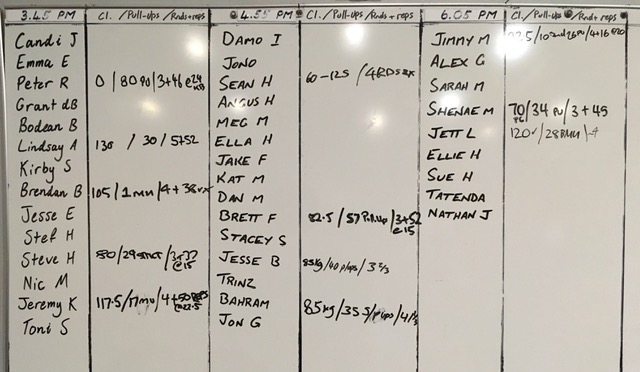 3.45 PM Cl. / Pull-ups / Rnds + reps
Candi J
Emma E
Peter R 0 / 80 PU / 3+46 @24
Grant dB
Bodean B
Lindsay A 130 / 30 / 5+52
Kirby S
Brendan B 105 / 1 MU / 4+38
Jesse E
Stef H
Steve H 80 / 29 strict / 3+37 @15
Nic M
Jeremy K 117.5 / 17 MU / 4+50 REPS @22.5
Toni S
4.55 PM Cl. / Pull-ups / Rnds + reps
Damo I
Jono
Sean H 60-125 / 4 RDS
Angus H
Meg M
Ella H
Jake F
Kat M
Dan M
Brett F 82.5 / 57 Pull Up / 3+52 @15
Stacey S
Jesse B 85kg / 40 p/ups / 3 2/3
Trinz
Bahram 85kg / 35 /
Jon G
6.05 PM Cl. / Pull-up / Rnd + rep
Jimmy M / 4+16 @20
Alex G
Sarah M
Shenae M 70 / 34 PU / 3+45
Jett L 120 /
Ellie H
Sue H
Tatenda
Nathan J